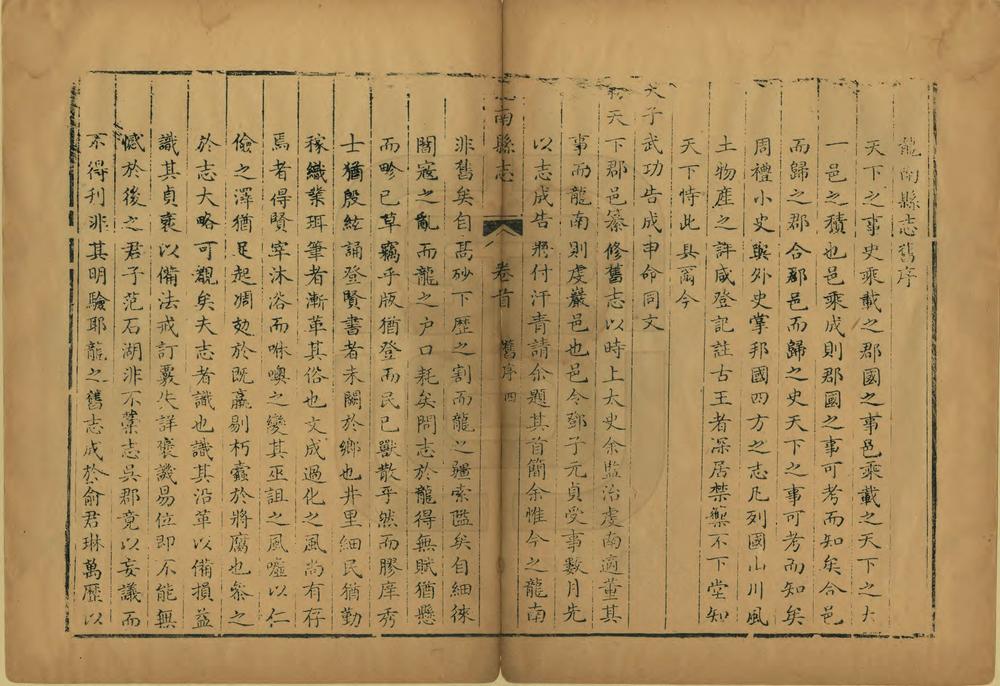 龍南縣志舊序
天下之事史乘載之郡國之事邑乘載之天下之大
一邑之積也邑乘成則郡國之事可考而知矣合邑
而歸之郡合郡邑而歸之史天下之事可考而知矣
周禮小史與外史掌邦國四方之志凡列國山川風
土物產之詳咸登記註古王者深居禁籞不下堂知
天下恃此具爾今
天子武功告成申命同文
天下郡邑纂修舊志以時上太史余監治虔南適董其
事而龍南則虔巖邑也邑令鄧子元貞受事數月先
以志成告將付汗青請余題其首簡余惟今之龍南
南縣志 卷首 舊序 四
非舊矣自萵砂下歷之割而龍之疆索隘矣自細徠
闖寇之亂而龍之户口耗矣問志於龍得無賦猶懸
而畛已草竊乎版猶登而民已獸散乎然而膠庠秀
士猶殷絃誦登賢書者未闕於鄉也井里細民猶勤
稼織業珥筆者漸革其俗也文成過化之風尚有存
焉者得賢宰沐浴而咻噢之變其巫詛之風噓以仁
儉之澤猶足起凋攰於既羸剔朽蠹於將腐也叅之
於志大略可覩矣夫志者識也識其沿革以備損益
識其貞裒以備法戒訂覈失詳褒譏易位即不能無
憾於後之君子范石湖非不葉志吳郡竟以妄議而
不得刊非其明驗耶龍之舊志成於俞君琳萬歷以